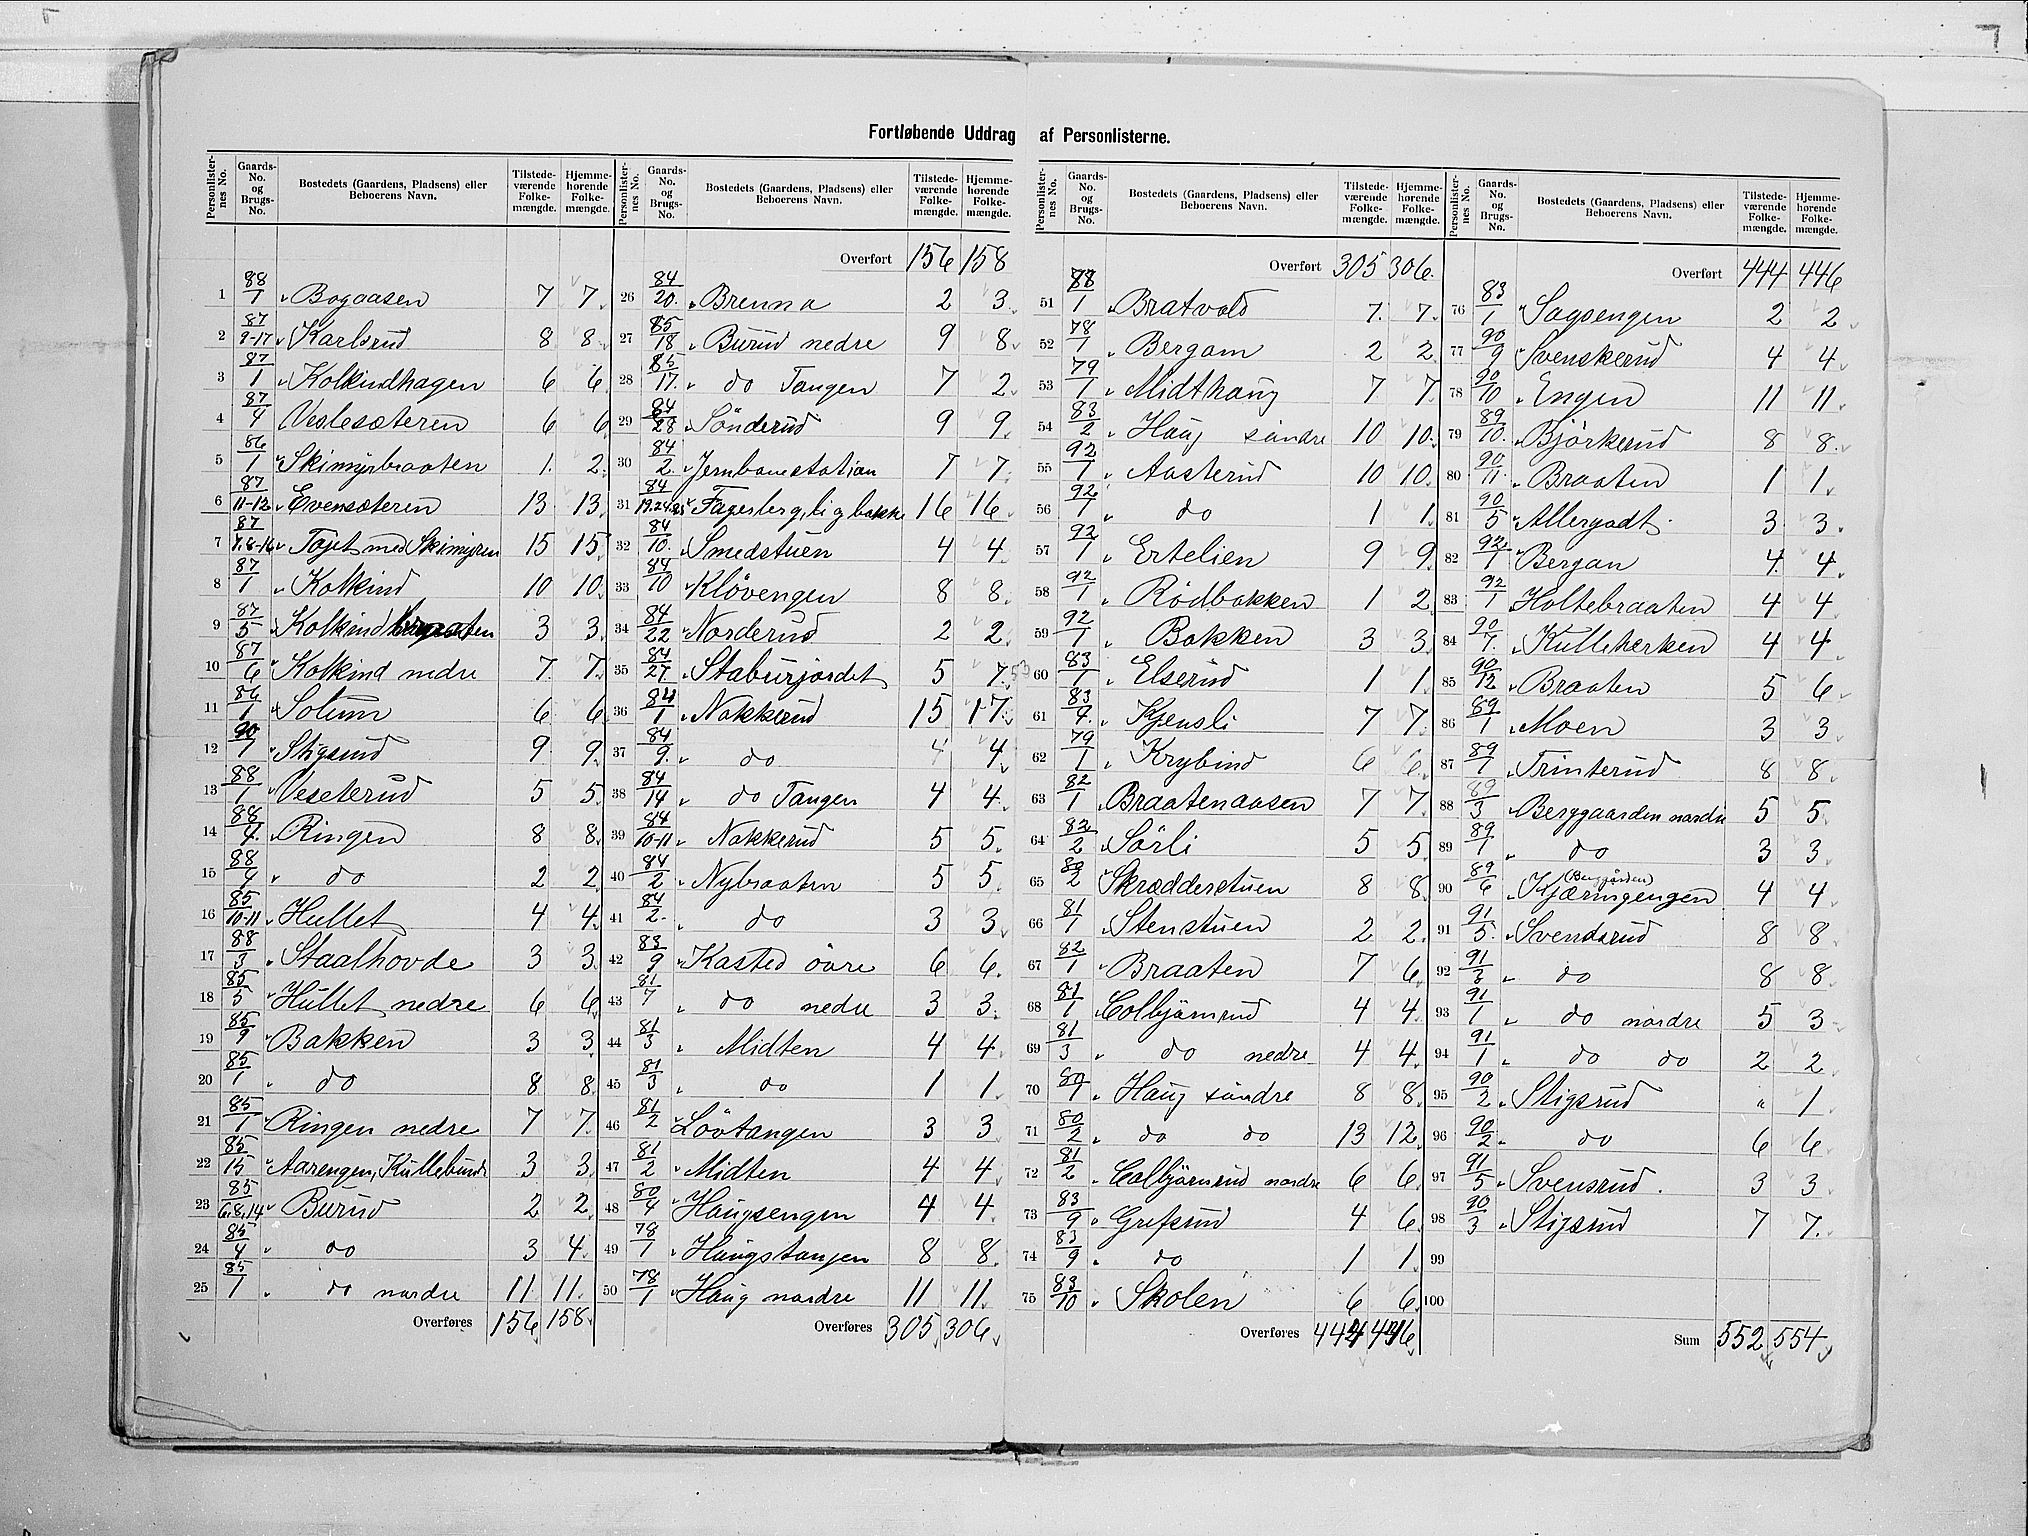 Fortløbende Uddrag af Personlisterne.
Personlisternes No. | Gaards-No. og Brugs-No. | Bostedets (Gaardens, Pladsens) eller Beboerens Navn. | Tilstedeværende Folkemængde. | Hjemmehørende Folkemængde.
1 88/1 " Bogaasen 7 7
2 87/9-17 " Karlsrud 8 8
3 87/1 " Kolkindhagen 6 6
4 87/4 Veslesæteren 6 6
5 86/1 " Skimyrbraaten 1 2
6 87/11-12 " Evensæteren 13 13
7 87/7.8-16 " Tajet med Skimyren 15 15
8 87/1 " Kolkind 10 10
9 87/5 " Kolkindbraaten 3 3
10 87/6 " Kolkind nedre 7 7
11 86/1 " Solum 6 6
12 90/1 " Stigsrud 9 9
13 88/1 " Veseterud 5 5
14 88/4 " Ringen 8 8
15 88/4 " do 2 2
16 85/10-11 " Hullet 4 4
17 88/3 " Staalhovde 3 3
18 85/5 " Hullet nedre 6 6
19 85/9 " Bakken 3 3
20 85/1 " do 8 8
21 85/1 " Ringen nedre 7 7
22 85/15 " Aarengen, Kullebund 3 3
23 85/6,8,14 " Burud 2 2
24 85/4 " do 3 4
25 85/1 " do nordre 11 11
Overføres 156 158
Personlisternes No. | Gaards-No. og Brugs-No. | Bostedets (Gaardens, Pladsens) eller Beboerens Navn. | Tilstedeværende Folkemængde. | Hjemmehørende Folkemængde.
Overført 156 158
26 84/20 " Brenna 2 3
27 85/18 " Burud nedre 9 8
28 85/17 " do Tangen 7 2
29 84/28 " Sönderud 9 9
30 84/2 " Jernbanestation 7 7
31 84 " Fagerberg, 16 16
32 84/10 " Smedstuen 4 4
33 84/10 " Klövengen 8 8
34 84/22 " Norderud 2 2
35 84/27 " Staburjordet 5 7
36 84/1 " Nakkerud 15 17
37 84/9 " do 4 4
38 84/14 " do Tangen 4 4
39 84/10-11 " Nakkerud 5 5
40 84/2 " Nybraaten 5 5
41 84/2 " do 3 3
42 83/9 " Kasted övre 6 6
43 81/7 " do nedre 3 3
44 81/3 " Midten 4 4
45 81/3 " do 1 1
46 81/2 " Lövtangen 3 3
47 81/2 " Midten 4 4
48 80/4 " Haugsengen 4 4
49 78/1 " Haugstangen 8 8
50 78/1 " Haug nordre 11 11
Overføres 305 306
Personlisternes No. | Gaards-No. og Brugs-No. | Bostedets (Gaardens, Pladsens) eller Beboerens Navn. | Tilstedeværende Folkemængde. | Hjemmehørende Folkemængde.
Overført 305 306
51 78/1 " Bratvold 7 7
52 78/1 " Bergam 2 2
53 79/1 " Midthaug 7 7
54 83/2 " Haug söndre 10 10
55 92/1 " Aasterud 10 10
56 92/1 " do 1 1
57 92/1 " Ertelien 9 9
58 92/1 " Rödbakken 1 2
59 92/1 " Bakken 3 3
60 83/1 " Elserud 1 1
61 83/4 " Kjensli 7 7
62 79/1 " Krybind 6 6
63 82/1 " Braatenaasen 7 7
64 82/2 " Sörli 5 5
65 80/2 " Skrædderstuen 8 8
66 81/1 " Stenstuen 2 2
67 82/1 " Braaten 7 6
68 81/1 " Colbjörnrud 4 4
69 81/3 " do nedre 4 4
70 80/1 " Haug söndre 8 8
71 80/2 " do do 13 12
72 81/2 " Colbjörnrud nordre 6 6
73 83/9 " Grefsrud 4 6
74 83/9 " do 1 1
75 83/10 " Skolen 6 6
Overføres 444 446
Personlisternes No. | Gaards-No. og Brugs-No. | Bostedets (Gaardens, Pladsens) eller Beboerens Navn. | Tilstedeværende Folkemængde. | Hjemmehørende Folkemængde.
Overført 444 446
76 83/1 " Sagsengen 2 2
77 90/9 " Svenskerud 4 4
78 90/10 " Engen 11 11
79 89/10 " Björkerud 8 8
80 90/11 " Braaten 1 1
81 90/5 " Allergodt 3 3
82 92/1 " Bergan 4 4
83 92/1 Holtebraaten 4 4
84 90/7 " Kullekerken 4 4
85 90/12 " Braaten 5 6
86 89/1 " Moen 3 3
87 89/1 " Trinterud 8 8
88 89/3 " Berggaarden nordre 5 5
89 89/1 " do 3 3
90 89/6 " Kjærringengen (Berggården) 4 4
91 91/5 " Svendsrud 8 8
92 91/3 " do 8 8
93 91/1 " do nordre 5 3
94 91/1 " do do 2 2
95 90/2 " Stigsrud " 1
96 90/2 " do 6 6
97 91/5 " Svensrud 3 3
98 90/3 " Stigsrud 7 7
99
100
Sum 552 554